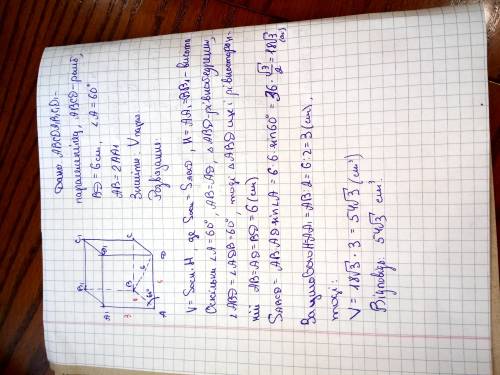 Дано: ABCDA₁B₁C₁D₁ -
паралелепіпед, ABCD - ромб,
BD = 6 см, ∠A = 60°
AB = 2AA₁
Знайти: V пар.
Розв'язання:
B₁ C₁
A₁ D₁
B C
6
3 60°
A 6 D
V = Sосн. · H, де Sосн = SABCD, H = AA₁ = BB₁ - висота
Оскільки ∠A = 60°, AB = AD, △ABD - рівнобедрений,
∠ABD = ∠ADB = 60°, тоді △ABD ще і рівносторон-
ній AB = AD = BD = 6 (см)
SABCD = AB · AD · sin∠A = 6 · 6 · sin60° = 36 · √3/2 = 18√3 (см)
За умовою H = AA₁ = AB : 2 = 6 : 2 = 3 (см).
тоді:
V = 18√3 · 3 = 54√3 (см³)
Відповідь: 54√3 см³.